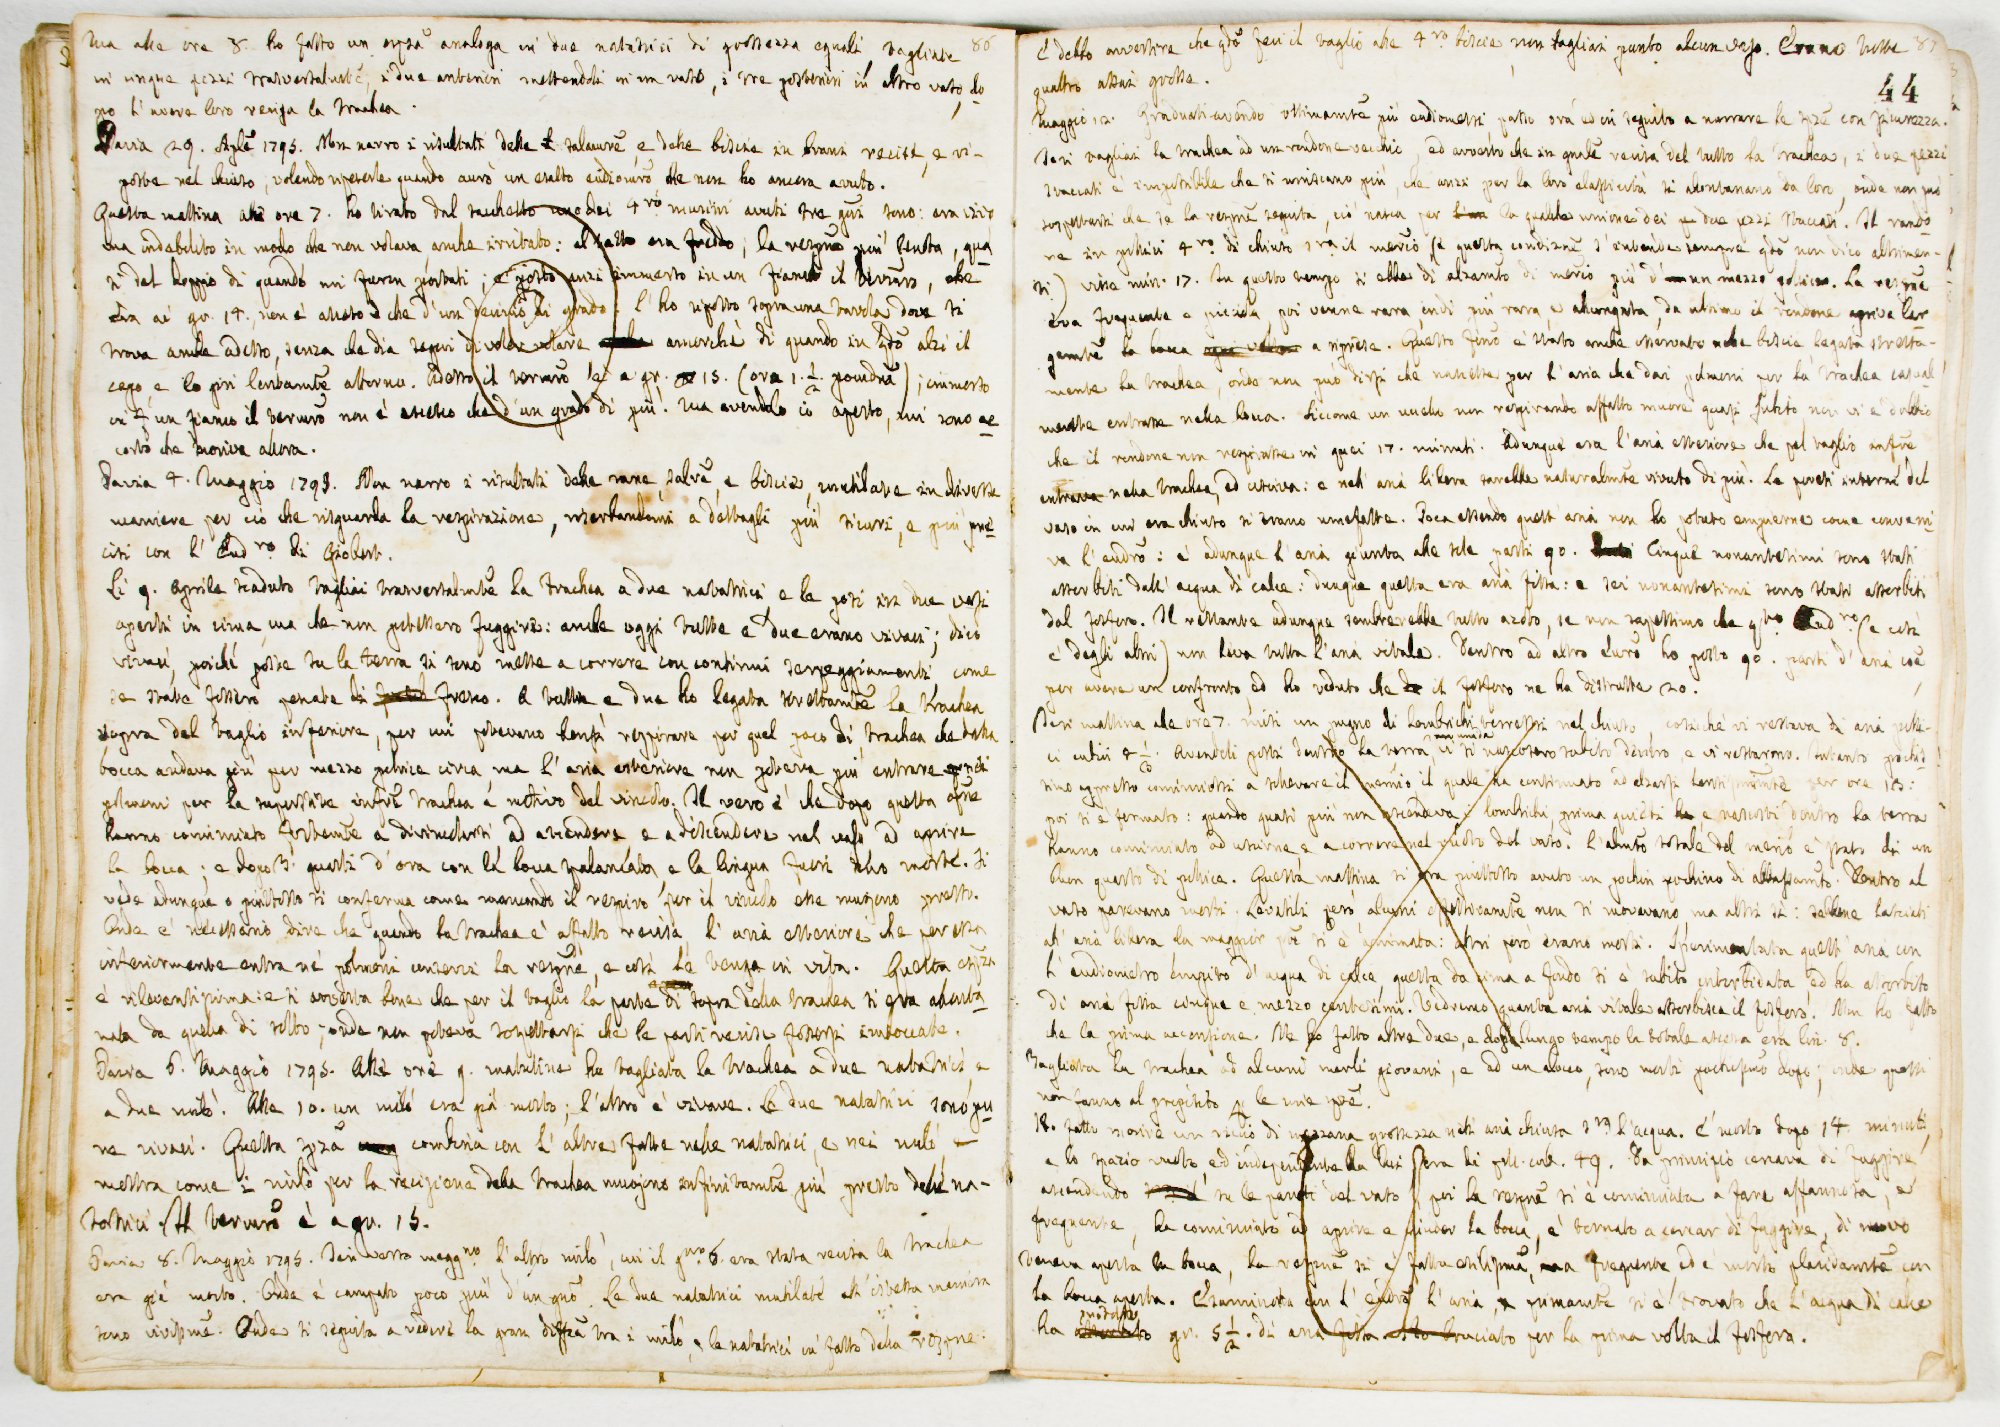 Ma alle ore 8. ho fatto un espza analoga in due natatrici di grossezza eguali tagliate 86
in cinque pezzi trasversalmte, i due anteriori mettendoli in un vaso, i tre posteriori in altro vaso, do
po l'avere loro recisa la trachea.
Pavia 29. Aple 1795. Non narro i risultati delle salamre, e delle biscie in brani recise, e ri-
poste nel chiuso, volendo ripeterle quando avrò un esatto eudiomro che non ho ancora avuto.
Questa mattina alle ore 7. ho tirato dal sacchetto uno dei 4ro musini avuti tre gni sono: era vivo
ma indebolito in modo che non volava, anche irritato: al tatto era freddo; la respne più lenta, qua
si del doppio di quando mi furon portati; e posto anzi immerso in un fianco il termro, che
era ai gr. 14., non è alzato che d'un di grado. l'ho riposto sopra una tavola dove si
trova anche adesso, senza che dia segni di voler volare ancorchè di quando in qdo alzi il
capo, e lo giri lentamte attorno. Adesso il termro è a gr. 15. (ora 1. 1/2 pomdna); immerso
in un fianco il termro non è asceso che d'un grado di più. Ma avendolo io aperto, mi sono ac
corto che moriva allora.
Pavia 4. Maggio 1795. Non narro i risultati delle rane, salre, e biscie, mutilate in diverse
maniere per ciò che risguarda la respirazione, riserbandomi a dettagli più sicuri, e più pre
cisi con l'Eudro di Giobert.
Li 9. Aprile scaduto tagliai trasversalmte la trachea a due natatrici e le posi in due vasi
aperti in cima ma che non potessero fuggire: anche oggi tutte e due erano vivaci; dico
vivaci, poichè poste su la terra si sono messe a correre con continui serpeggiamenti come
se state fossero prese di fresco. A tutte e due ho legata strettamte la trachea
sopra del taglio inferiore, per cui potevano bensì respirare per quel poco di trachea che dalla
bocca andava giù per mezzo pollice circa ma l'aria esteriore non poteva più entrare nei
polmoni per la superstite infre trachea a motivo del vincolo. Il vero è che dopo questa opne
hanno cominciato fortemte a divincolarsi ad ascendere e a discendere nel vaso ad aprire
la bocca; e dopo 3 quarti d'ora con la bocca spalancata e la lingua fuori sono morte. Si
vede adunque o piuttosto si conferma come mancando il respiro per il vincolo esse muojono presto.
Onde è necessario dire che quando la trachea è affatto recisa, l'aria esteriore che per essa
inferiormente entra ne' polmoni conservi la respne, e così le tenga in vita. Questa espza
è rilevantissima: e si osserva bene che per il taglio la parte di sopra della trachea si era allonta
nata da quella di sotto; onde non poteva sospettarsi che le parti recise fossersi imboccate.
Pavia 6. Maggio 1795. Alle ore 9. matutine ho tagliata la trachea a due natatrici, e
a due milò. Alle 10. un milò era già morto; l'altro è vivace. Le due natatrici sono pu
re vivaci. Questa spza combina con l'altre fatte nelle natatrici, e nei milò,
mostra come i milò per la recisione della trachea muojono infinitamte più presto delle na-
tatrici. Il termro è a gr. 15.
Pavia 8. Maggio 1795. Ieri verso meggno l'altro milò, cui il gno 6. era stata recisa la trachea
era già morto. Onde è campato poco più d'un gno. Le due natatrici mutilate all'istessa maniera
sono vivissme. Onde si seguita a vedere la gran diffza tra i milò, e le natatrici in fatto della respne.
E debbo avvertire che qdo feci il taglio alle 4ro biscie non tagliai punto alcun vaso. Erano tutte 87
quattro assai grosse. 44
Maggio 12. Graduati avendo ottimamte più eudiometri, passo ora ed in seguito a narrare le spze con sicurezza.
Ieri tagliai la trachea ad un rondone vecchio, ed avverto che in quale recisa del tutto la trachea, i due pezzi
staccati è impossibile che si uniscano più, che anzi per la loro elasticità si allontanano da loro, onde non può
sospettarsi che se la respne seguita, ciò nasca per la qualche unione dei due pezzi staccati. Il rondo
ne in pollici 4ro di chiuso sra il mercio (e questa condizne s'intende sempre qdo non dico altrimen-
ti) visse min. 17. In questo tempo si ebbe di alzamto di mercio più d'un mezzo pollice. La respne
era frequente e piccola, poi venne rara, indi più rara, e allungata, da ultimo il rondone apriva lar
gamte la bocca a riprese. Questo feno è stato anche osservato nelle biscie legata stretta-
mente la trachea, onde non può dirsi che nascesse per l'aria che dai polmoni per la trachea casual
mente entrasse nella bocca. Siccome un uccello non respirando affatto muore quasi subito non vi è dubbio
che il rondone non respirasse in quei 17. minuti. Adunque era l'aria esteriore che pel taglio infre
entrava nella trachea, ed usciva: e nell'aria libera sarebbe naturalmte vivuto di più. Le pareti interni del
vaso in cui era chiuso si erano umefatte. Poca essendo quest'aria non ho potuto empierne come conveni
va l'eudro: è adunque l'aria giunta alle sole parti 90. Cinque nonantesimi sono stati
assorbiti dall'acqua di calce: dunque questa era aria fissa: e sei nonantesimi sono stati assorbiti
dal fosforo. Il restante adunque sembrerebbe tutto azoto, se non sapessimo che qsto Eudro (e così
è degli altri) non leva tutta l'aria vitale. Dentro ad altro Euro ho posto 90. parti d'aria coe
per avere un confronto ed ho veduto che il fosforo ne ha distrutte 20.
Ieri mattina alle ore 7. misi un pugno di lombrichi terrestri nel chiuso, cosichè vi restava di aria polli-
ci cubici 4 1/2. Avendoli posti dentro la terra umida vi si nascosero subito dentro, e vi restarono. Intanto pochis
simo appresso cominciossi a sollevare il mercio il quale ha continuato ad alzarsi lentissimamte per ore 13:
poi si è fermato: quando quasi più non ascendeva i lombrichi prima quieti e nascosti dentro la terra
hanno cominciato ad uscirne e a correre nel vuoto del vaso. L'alzato totale del mercio è stato di un
buon quarto di pollice. Questa mattina si era piuttosto avuto un pochin pochino di abbassamto. Dentro al
vaso parevano morti. Levatili però alcuni effettivamte non si movevano ma altri sì: sebbene lasciati
all'aria libera la maggior pte si è rianimata: altri però erano morti. Sperimentata quest'aria con
l'eudiometro empito d'acqua di calce, questa da cima a fondo si è subito intorbidata ed ha assorbito
di aria fissa cinque e mezzo centesimi. Vedremo quanta aria vitale assorbisca il fosforo. Non ho fatto
che la prima accensione. Ne ho fatto altre due, e dopo lungo tempo la totale ascesa era lin. 8.
Tagliata la trachea ad alcuni merli giovani, e ad un alocco, sono morti pochissimo dopo; onde questi
non fanno al proposito le mie spe.
18. Fatto morire un riccio di mezzana grossezza nell'aria chiusa sra l'acqua. È morto dopo 14 minuti,
e lo spazio vuoto ed independente da lui era di poll. cub. 49. Da principio cercava di fuggire
ascendendo su le pareti del vaso, poi la respne si è cominciata a fare affannosa, e
frequente, ha cominciato ad aprire e chiuder la bocca, è tornato a cercar di fuggire, di nuovo
teneva aperta la bocca, la respne si è fatta esilissma, ma frequente, ed è morto placidamte con
la bocca aperta. Esaminata con l'eudro l'aria, primamte si è trovato che l'acqua di calce
ha assorbito gr. 5 1/2. di aria fissa. Ho bruciato per la prima volta il fosforo.